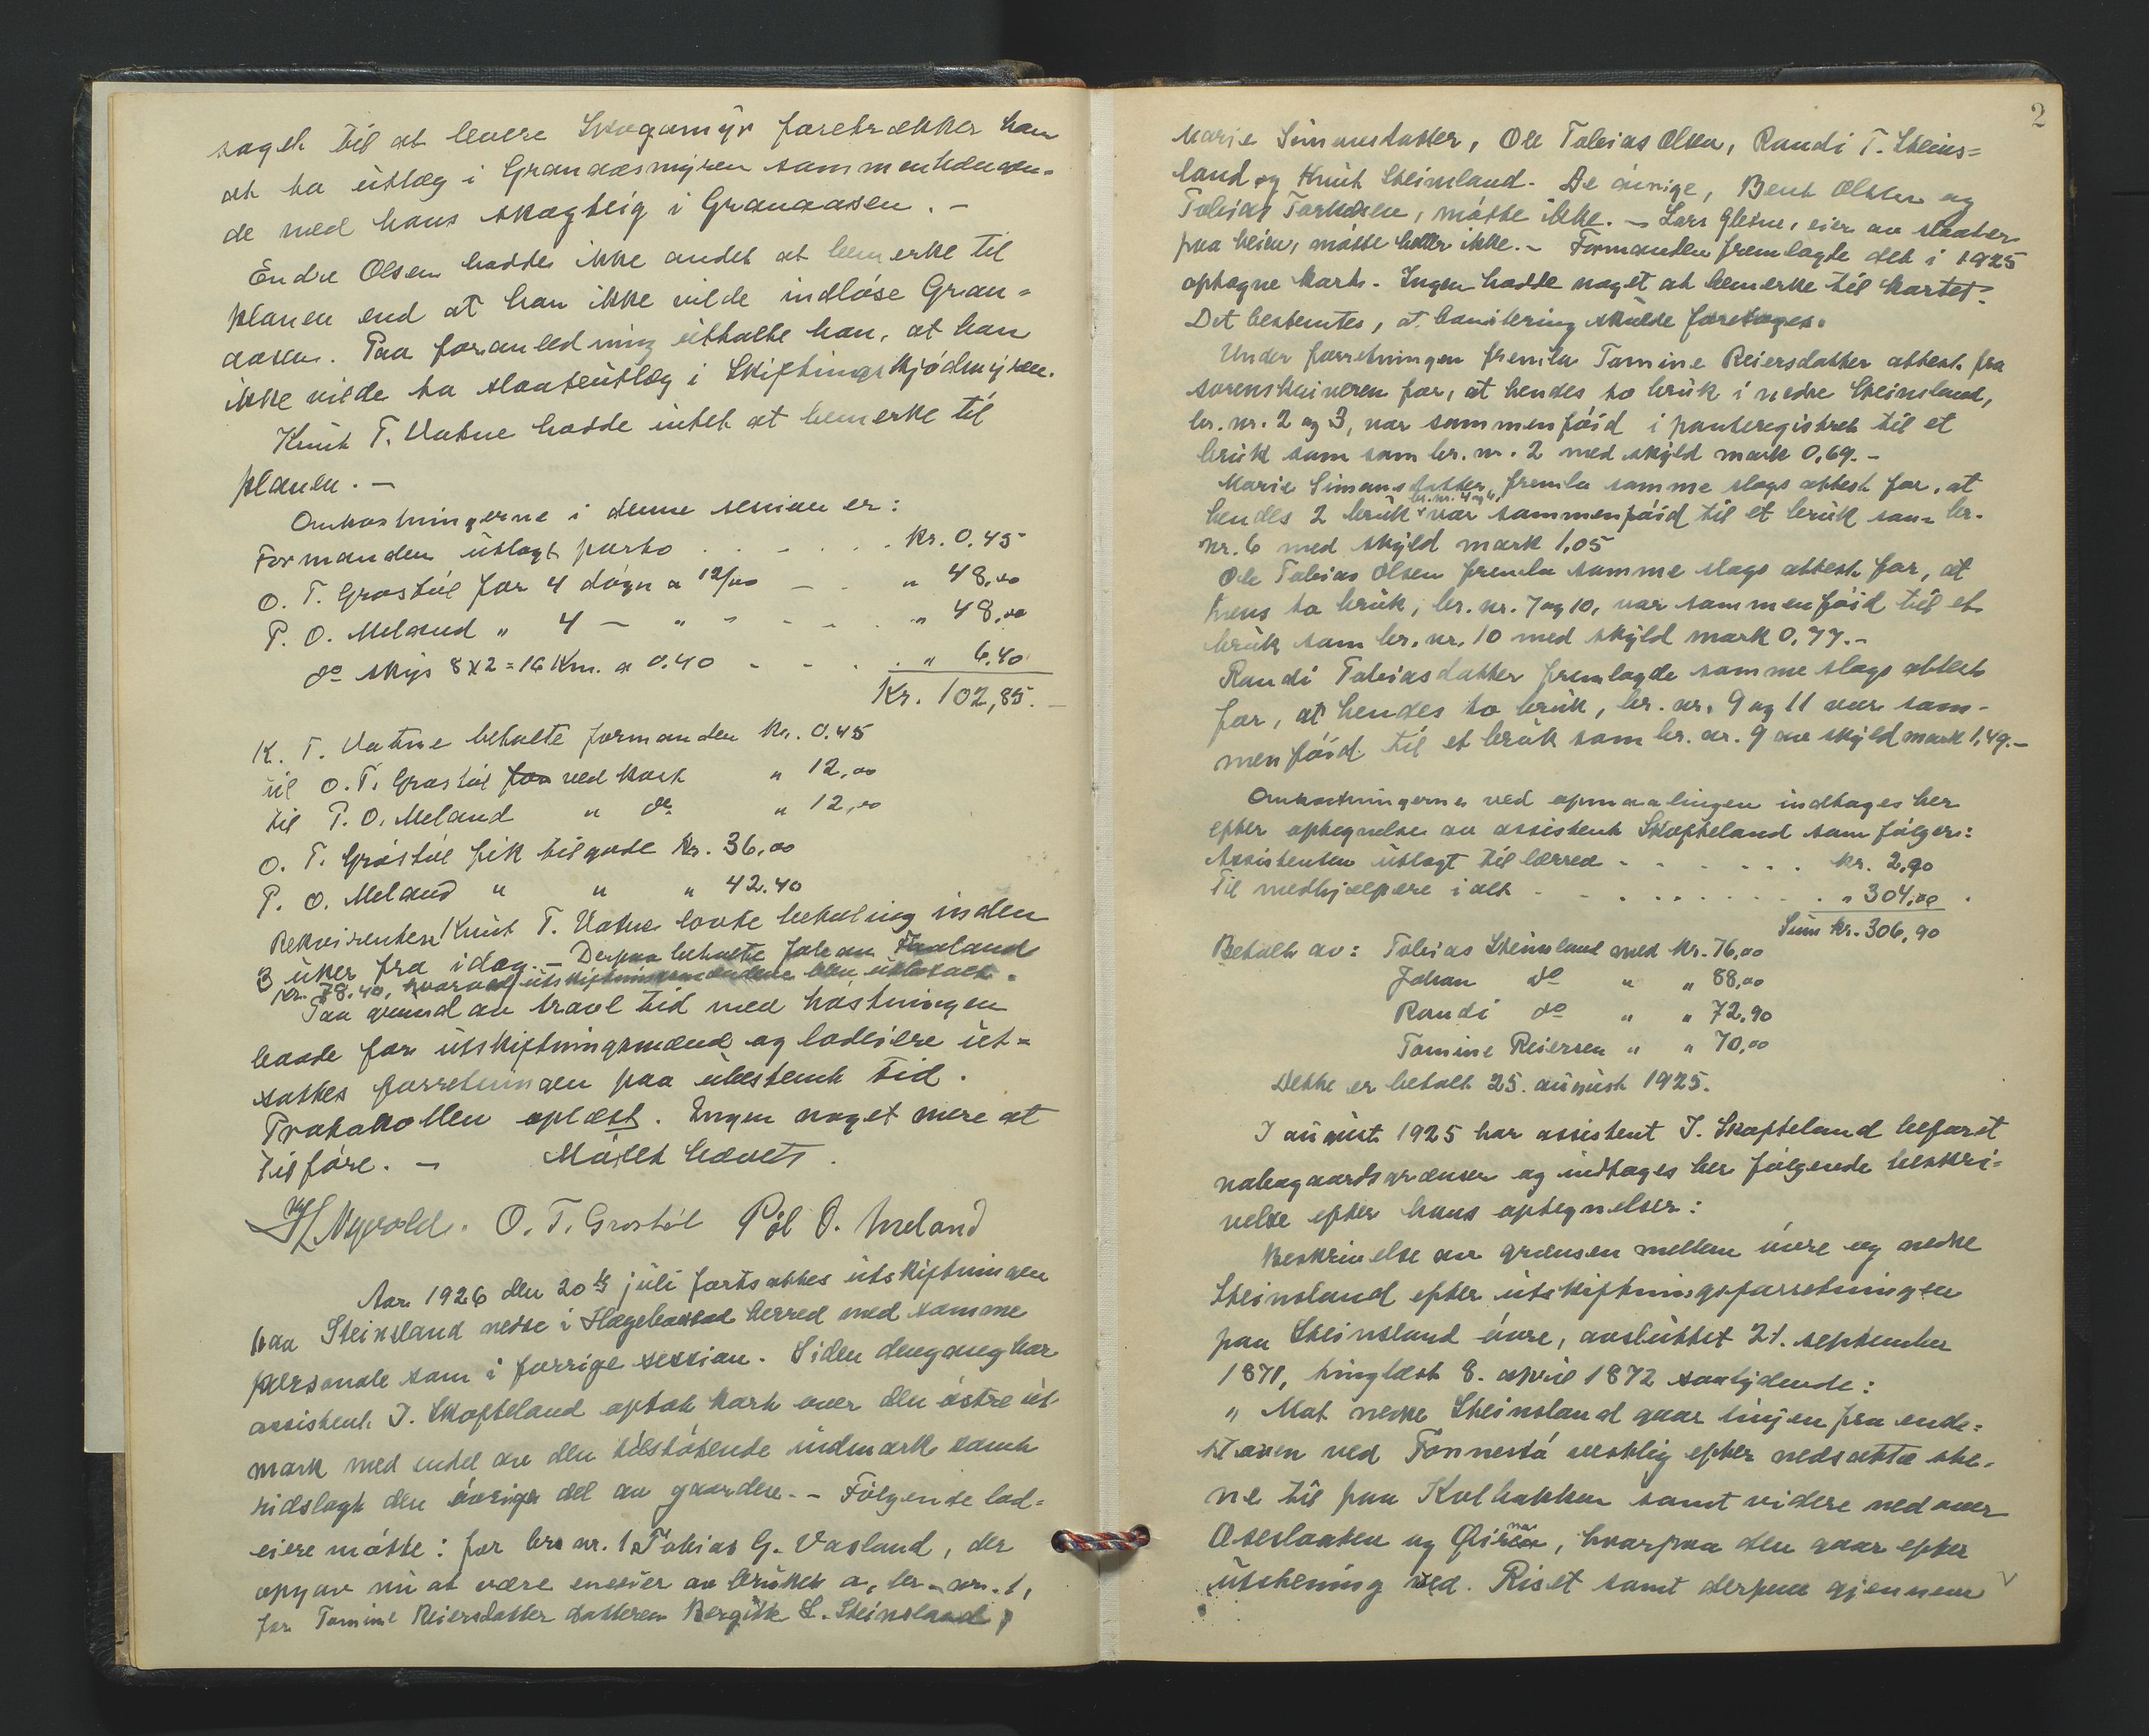 sagt til at levere Skogamyr foretrækker han
at ta utlæg i Granaasmyren sammenhængen-
de med hans skogteig i Granaasen. -
Endre Olsen hadde ikke andet at bemerke til
planen end at han ikke vilde indløse Gran-
aasen. Paa foranledning uttalte han, at han
ikke vilde ta slaateutlæg i Skiftingskjødmyren.
Knut T. Vatne hadde intet at bemerke til
planen. -
Omkostningerne i denne session er:
Formanden utlagt porto . . . . . kr. 0,45
O. T. Grostøl for 4 døgn a 12/00 - . „ 48,00
P. O. Meland „ 4 - „ - - . „ 48,00
do skys 8x2=16 Km. a 0.40 - - . . „ 6,40
Kr. 102,85. -
K. T. Vatne betalte formanden kr. 0.45
til O. T. Grostøl for ved kost „ 12,00
til P. O. Meland „ do „ 12,00
O. T. Grostøl fik tilgode kr. 36,00
P. O. Meland „ „ „ 42.40
Rekvirenten Knut T. Vatne lovte betaling inden
3 uker fra idag. - Derpaa betalte Johan
kr. 78.40, hvorved utskiftningsmændene blev utbetalt.
Paa grund av travl tid med høstningen
baade for utskiftningsmænd og lodeiere ut-
sattes forretningen paa ubestemt tid.
Protokollen oplæst. Ingen noget mere at
tilføre. - Møtet hævet.
Nyvold. O. T. Grostøl Pål O. Meland
Aar 1926 den 20de juli fortsattes utskiftningen
paa Steinsland nedre i Hægebostad herred med samme
personale som i forrige session. Siden dengang har
assistent I. Skofteland optat kart over den østre ut-
mark med endel av den tilstøtende indmark samt
sidslagt den øvrige del av gaarden. - Følgende lod-
eiere møtte: for br. nr. 1 Tobias G. Vasland, der
opgav nu at være eneeier av bruket a, br. nr. 1,
for Tomine Reiersdatter datteren Bergitte S. Steinsland,
2
Marie Simonsdatter, Ole Tobias Olsen, Randi T. Steins-
land og Knut Steinsland. De øvrige, Bent Olsen og
Tobias Torkelsen, møtte ikke. - Lars Gletne, eier av slaatter
paa heien, møtte heller ikke. - Formanden fremlagte det i 1925
optagne kart. Ingen hadde noget at bemerke til kartet.
Det bestemtes, at bonitering skulde foretages.
Under forretningen fremla Tomine Reiersdatter attest fra
sorenskriveren for, at hendes to bruk i nedre Steinsland,
br. nr. 2 og 3, var sammenføid i panteregistret til et
bruk som som br. nr. 2 med skyld mark 0,69. -
Marie Simonsdatter fremla samme slags attest for, at
hendes 2 bruk br. nr. 4 og 6, var sammenføid til et bruk som br.
nr. 6 med skyld mark 1,05
Ole Tobias Olsen fremla samme slags attest for, at
hans to bruk, br. nr. 7 og 10, var sammenføid til et
bruk som br. nr. 10 med skyld mark 0,77. -
Randi Tobiasdatter fremlagde samme slags attest
for, at hendes to bruk, br. nr. 9 og 11 var sam-
menføid til et bruk som br. nr. 9 av skyld mark 1,49. -
Omkostningerne ved opmaalingen indtages her
efter optegnelse av assistent Skofteland som følger:
Assistenten utlagt til lærred - - - - . . . kr. 2,90
Til medhjælpere i alt - - . . . . . . . „ 304,00
Sum kr. 306,90
Betalt av: Tobias Steinsland med kr. 76,00
Johan do „ „ 88,00
Randi do „ „ 72,90
Tomine Reiersen „ „ 70,00
Dette er betalt 25. august 1925.
I august 1925 har assistent I. Skofteland befaret
nabogaardsgrænser og indtages her følgende beskri-
velse efter hans optegnelser:
Beskrivelse av grænsen mellem øvre og nedre
Steinsland efter utskiftningsforretningen
paa Steinsland øvre, avsluttet 21. september
1871, tinglæst 8. april 1872 saalydende:
„ Mot nedre Steinsland gaar linjen fra ende-
staven ved Tonnestø vestlig efter nedsatte ste-
ne til paa Kolbakken samt videre nedover
Oseslaaten og , hvorpaa den gaar efter
utstening ved Riset samt derpaa gjennem